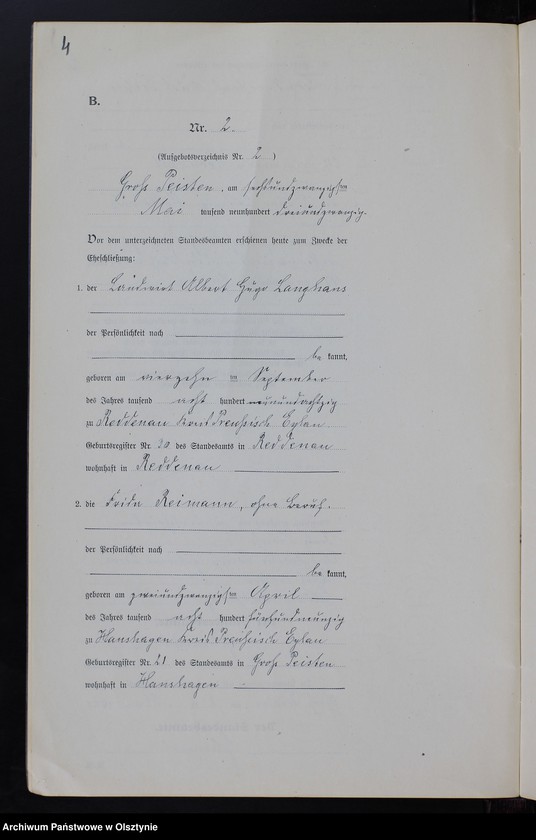 4
B.
Nr. 2.
(Aufgebotsverzeichnis Nr. 2)
Groß Peisten, am sechsundzwanzigsten
Mai tausend neunhundert dreiundzwanzig.
Vor dem unterzeichneten Standesbeamten erschienen heute zum Zwecke der
Eheschließung:
1. der Landwirt Albert Hugo Langhans
der Persönlichkeit nach
be kannt,
geboren am vierzehn ten September
des Jahres tausend acht hundert neunundachtzig
zu Reddenau Kreis Preußisch Eylau
Geburtsregister Nr. 20 des Standesamts in Reddenau
wohnhaft in Reddenau
2. die Frida Reimann, ohne Beruf.
der Persönlichkeit nach
be kannt,
geboren am zweiundzwanzigsten April
des Jahres tausend acht hundert fünfundneunzig
zu Hanshagen Kreis Preußisch Eylau
Geburtsregister Nr. 21 des Standesamts in Groß Peisten
wohnhaft in Hanshagen
Archiwum Państwowe w Olsztynie